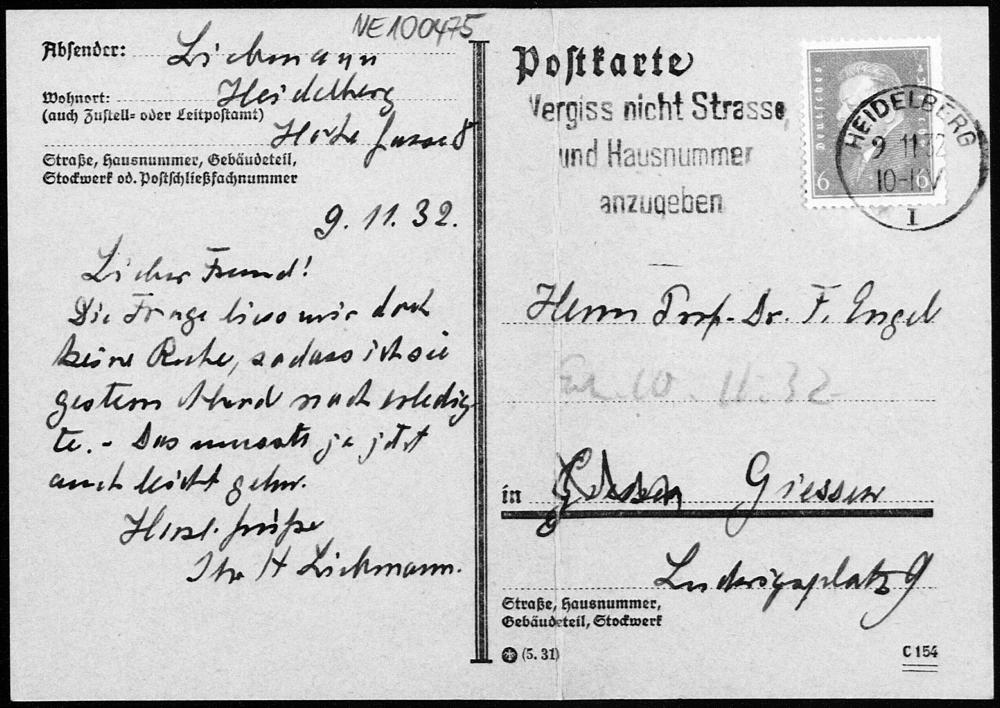 NE100475
Absender: Liebmann
Wohnort: Heidelberg
(auch Zustell- oder Leitpostamt)
Straße, Hausnummer, Gebäudeteil,
Stockwerk od. Postschließfachnummer
9. 11. 32.
Lieber Freund!
Die Frage liess mir doch
keine Ruhe, sodass ich sie
gestern Abend noch erledig
te. - Das musste ja jetzt
auch leicht gehn.
Herzl. Grüße
Ihr H Liebmann.
Postkarte
Vergiss nicht Strasse
und Hausnummer
anzugeben
Deutsches
6 6
HEIDELBERG
9 11 32
I
Herrn Prof. Dr. F. Engel
10. 11. 32
in Giessen
Ludwigsplatz 9
Straße, Hausnummer,
Gebäudeteil, Stockwerk
(5. 31)
C 154